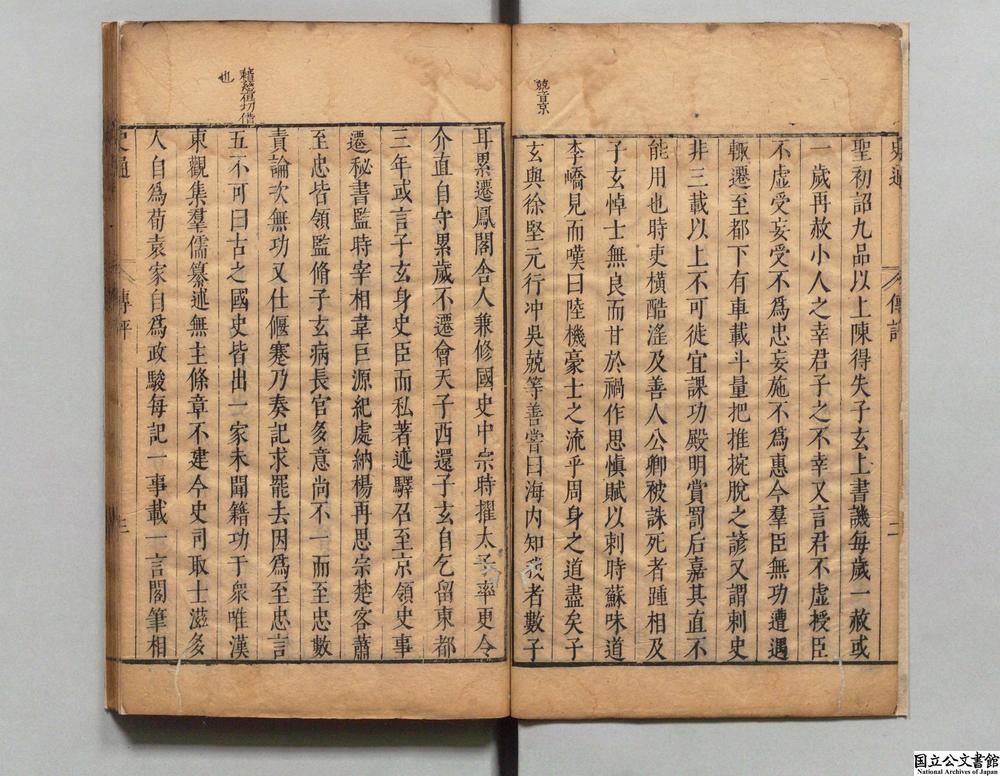 兢音京
聖初詔九品以上陳得失子玄上書譏每歲一赦或
一歲再赦小人之幸君子之不幸又言君不虛授臣
不虛受妄受不爲忠妄施不爲惠今羣臣無功遭遇
輒遷至都下有車載斗量把推捥脫之諺又謂刺史
非三載以上不可徙宜課功殿明賞罰后嘉其直不
能用也時吏橫酷滛及善人公卿被誅死者踵相及
子玄悼士無良而甘於禍作思愼賦以刺時蘇味道
李嶠見而嘆曰陸機豪士之流乎周身之道盡矣子
玄與徐堅元行冲吳兢等善嘗曰海内知我者數子
史通
傳評
二
切借
也
耳累遷鳳閣舍人兼修國史中宗時擢太子率更令
介直自守累歲不遷會天子西還子玄自乞留東都
三年或言子玄身史臣而私著述驛召至京領史事
遷秘書監時宰相韋巨源紀處納楊再思宗楚客蕭
至忠皆領監脩子玄病長官多意尚不一而至忠數
責論次無功又仕偃蹇乃奏記求罷去因爲至忠言
五不可曰古之國史皆出一家未聞籍功于衆唯漢
東觀集羣儒纂述無主條章不建今史司取士滋多
人自爲荀袁家自爲政駿每記一事載一言閣筆相
史通
傳評
三
国立公文書館
National Archives of Japan